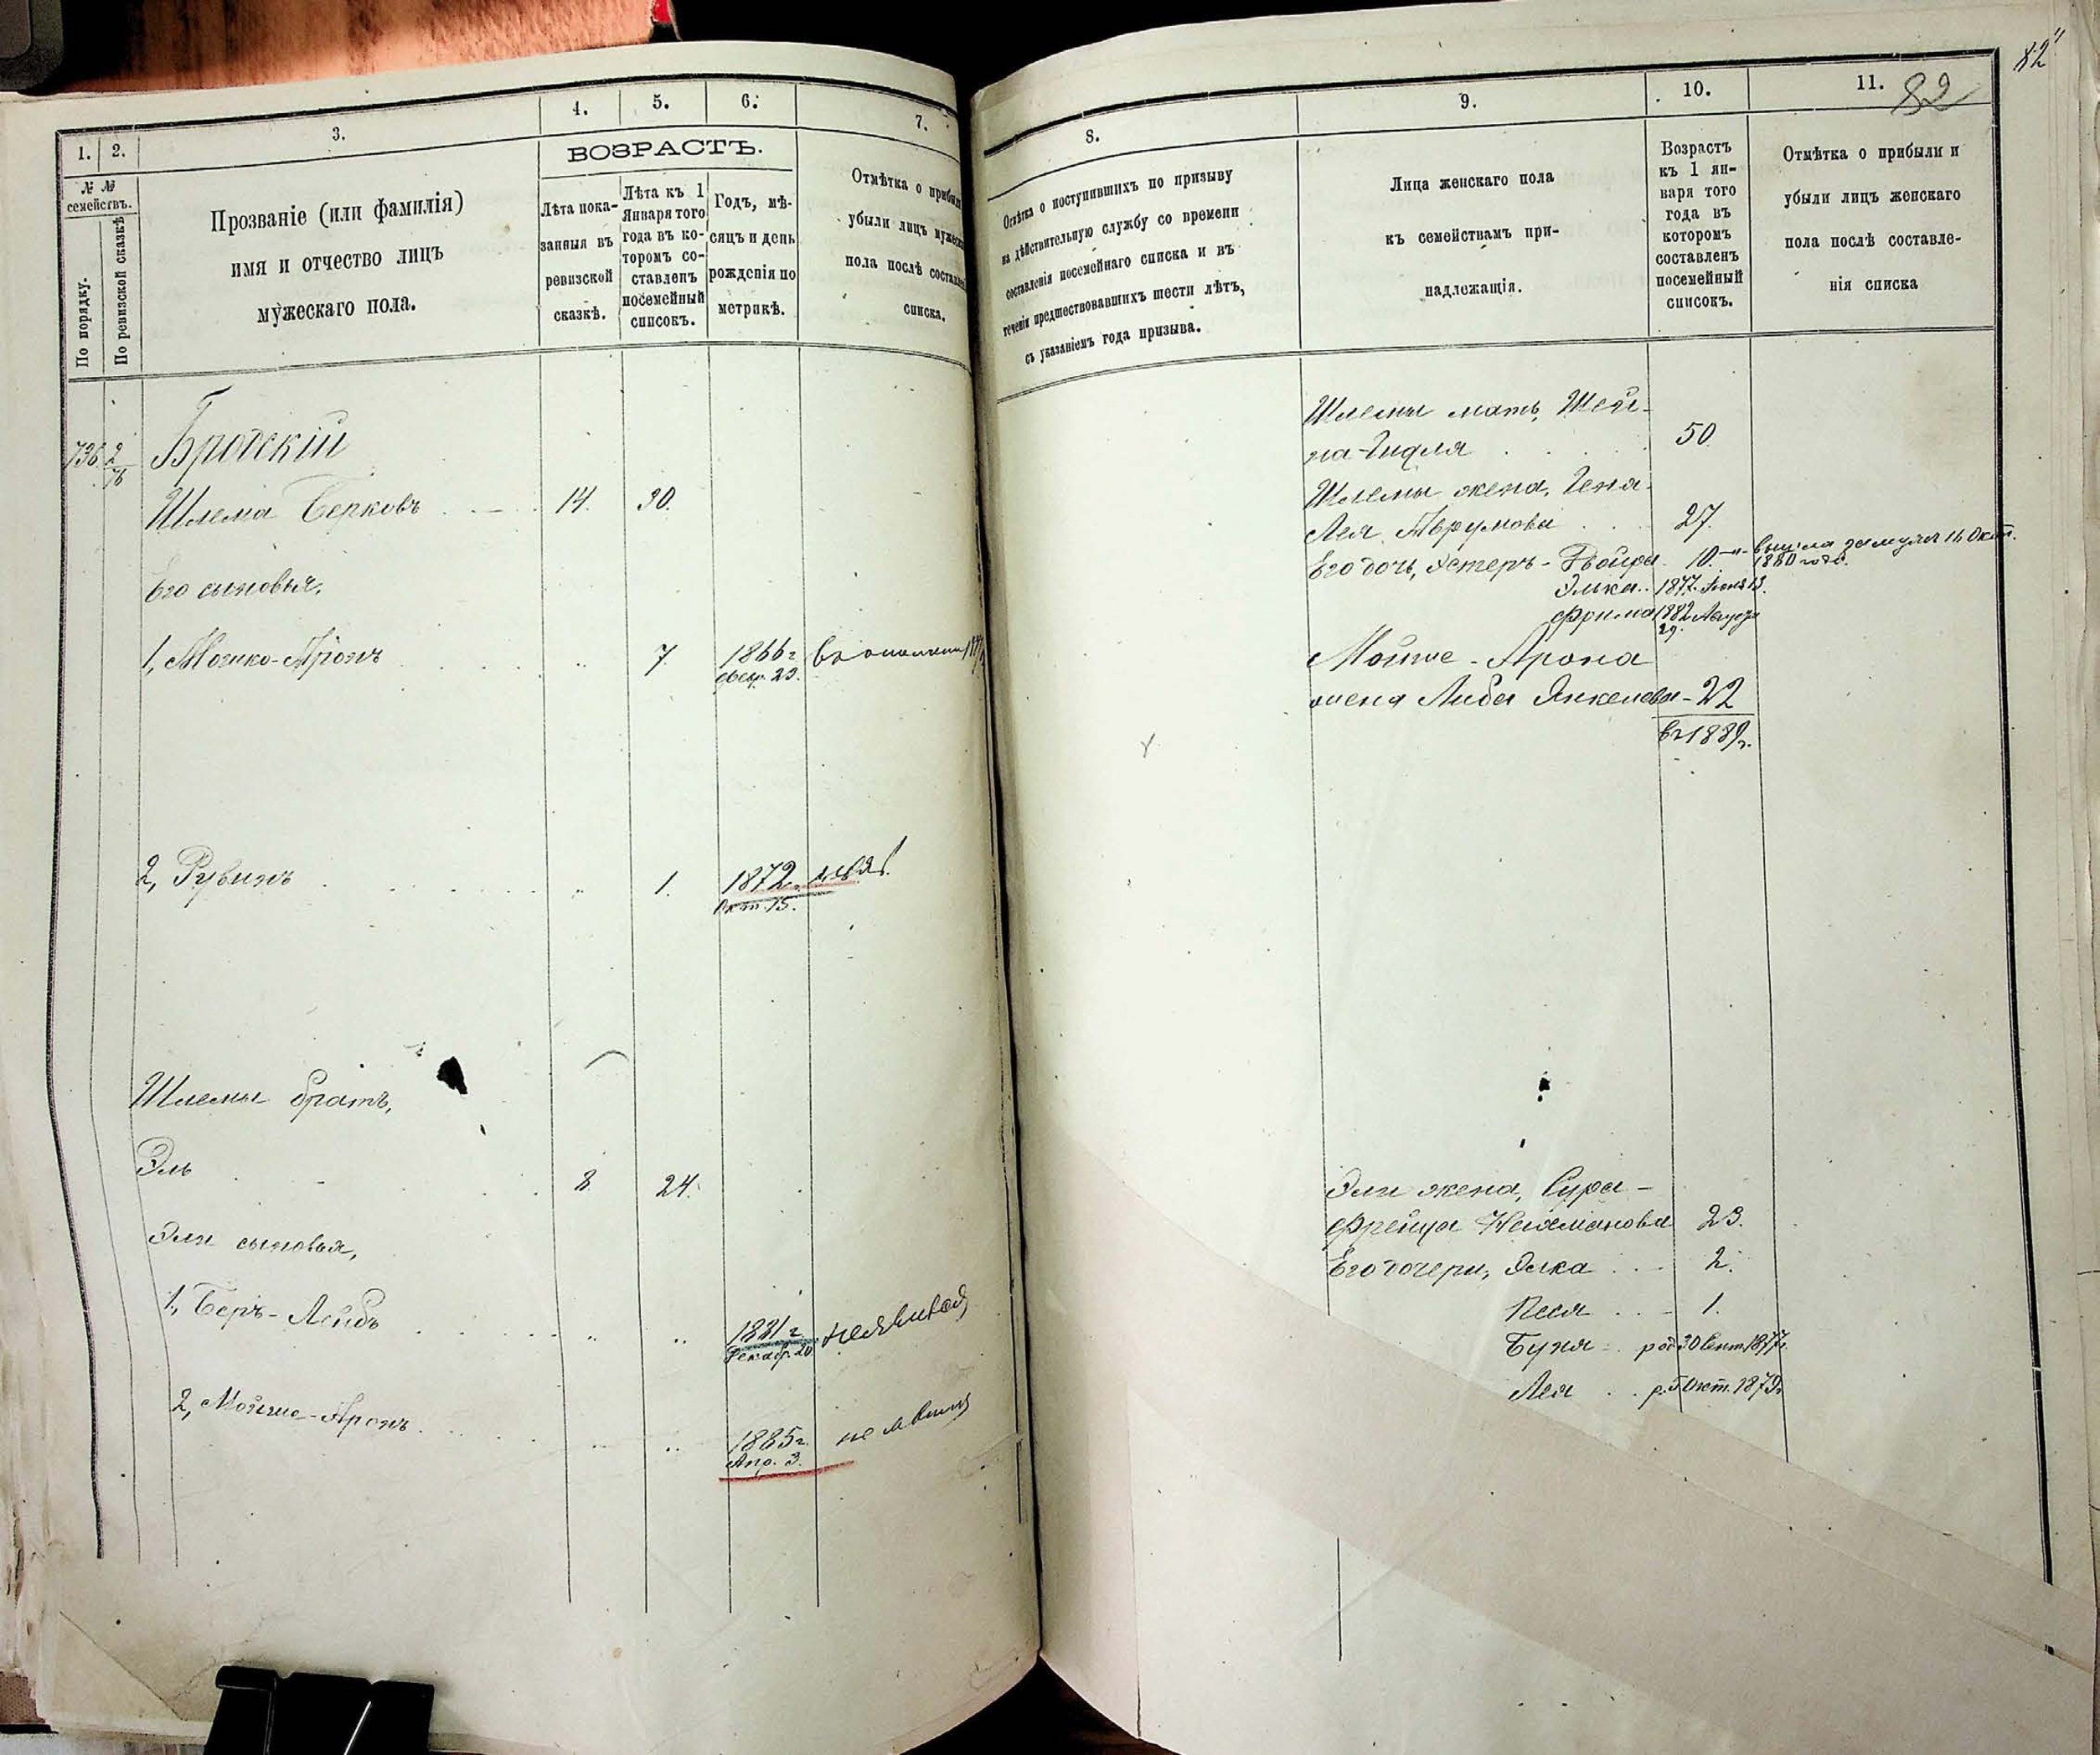 82
82
1.
2.
3.
4.
5.
6.
7.
ВОЗРАСТЪ.
№ №
семействъ.
По порядку.
По ревизской сказкѣ
Прозваніе (или фамилія)
имя и отчество лицъ
мужескаго пола.
Лѣта пока-
занныя въ
ревизской
сказкѣ.
Лѣта къ 1
Января того
года въ ко-
торомъ со-
ставленъ
посемейный
списокъ.
Годъ, мѣ-
сяцъ и день
рожденія по
метрикѣ.
Отмѣтка о прибыли
убыли лицъ мужеск
пола послѣ составлен
списка.
736 2/76 Бродскій
Шлема Берковъ 14. 30.
Его сыновья,
1, Мошко-Аронъ 7. 1866 г
Февр. 23.
2, Рувинъ 1. 1872
Окт. 15.
Шлемы братъ,
Эль 8 24.
Эли сыновья,
1, Беръ-Лейбъ 1881 г неявился
Декабр. 20
2, Мойше-Аронъ 1885 г.
Апр. 3.
8.
9.
10.
11.
Отмѣтка о поступившихъ по призыву
на дѣйствительную службу со времени
составленія посемейнаго списка и въ
теченіи предшествовавшихъ шести лѣтъ,
съ указаніемъ года призыва.
Лица женскаго пола
къ семействамъ при-
надлежащія.
Возрастъ
къ 1 ян-
варя того
года въ
которомъ
составленъ
посемейный
списокъ.
Отмѣтка о прибыли и
убыли лицъ женскаго
пола послѣ составле-
нія списка
Шлемы мать, Шей-
на-Гидля 50.
Шлемы жена, Геня-
Лея Аврумова 27.
Его дочь, Эстеръ-Двойра 10. вышла замужъ 16 Окт.
1880 года.
Элька 1877. Іюня 13.
Фрима 1882 Августа
29.
Мойше-Арона
жена Либа Янкелева-22
въ 1889 г.
Эли жена, Сура-
Фрейда Нехеманова 23.
Его дочери, Элка 2.
Песя 1.
Буня род 30 Сент 1877 г.
Лея р. 5 Окт. 1879 г